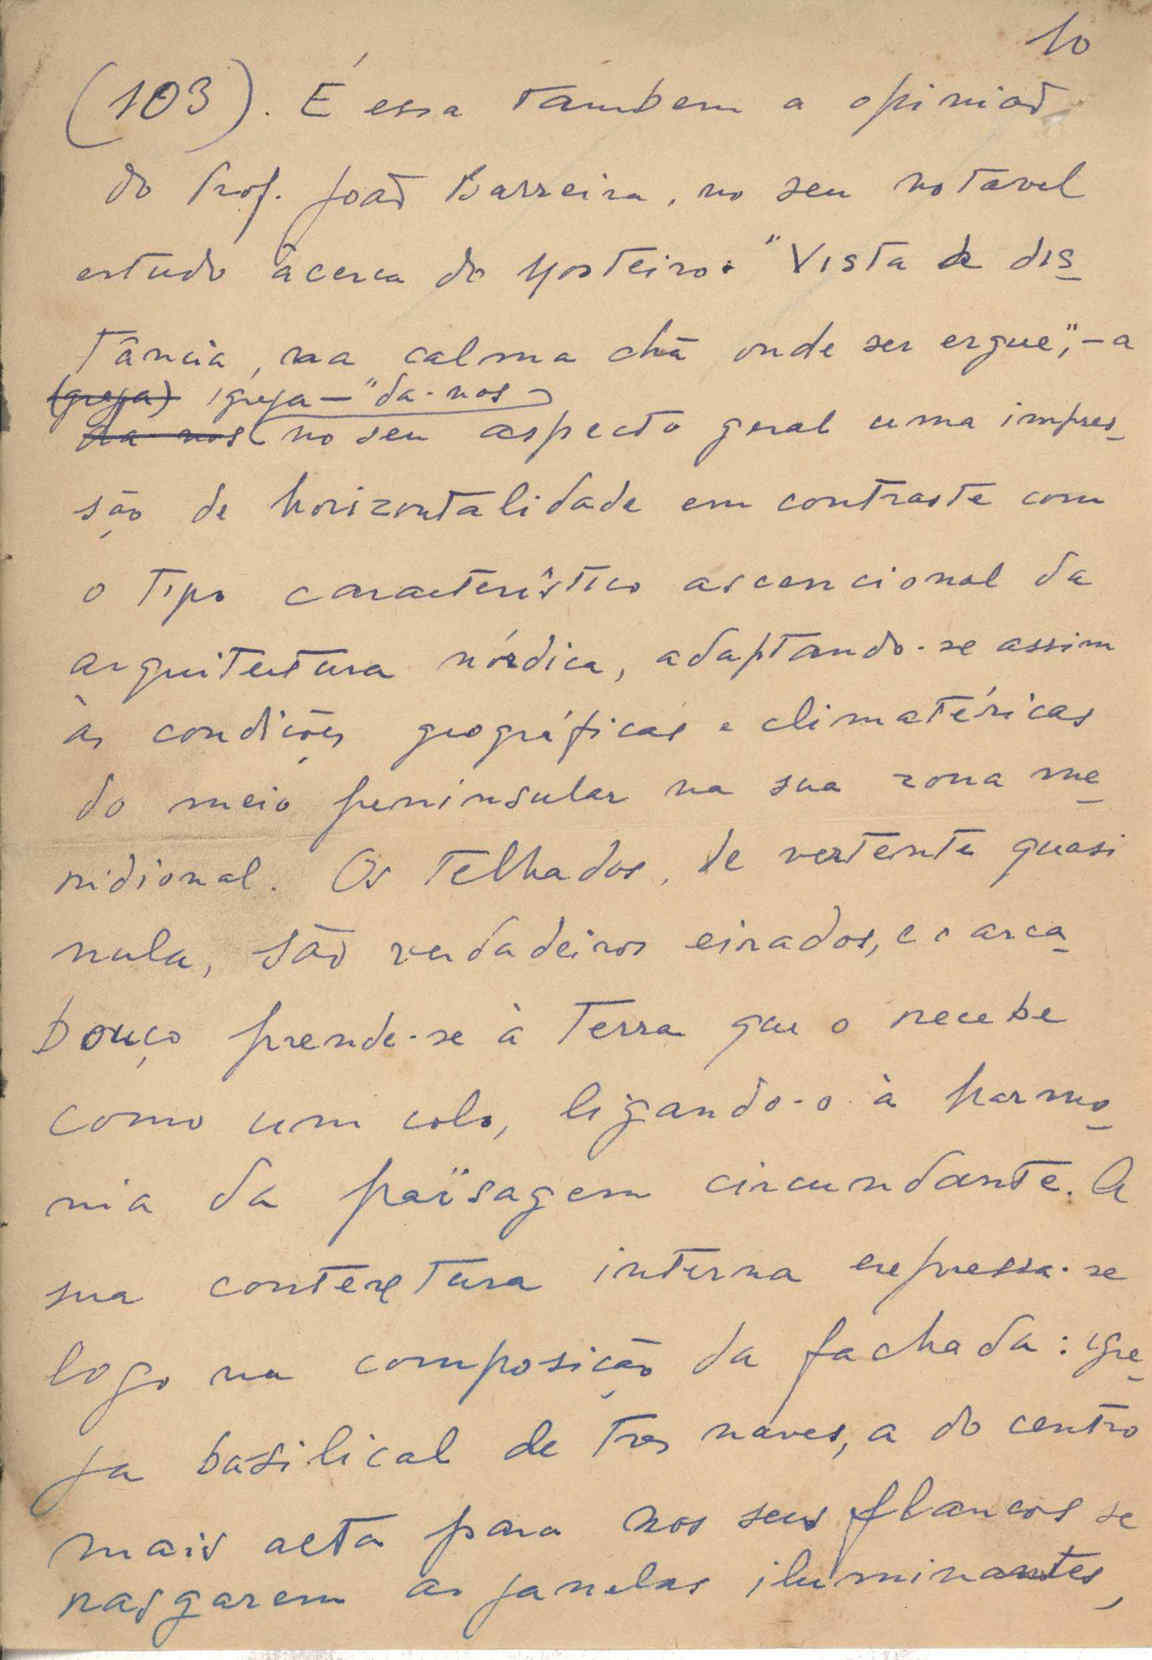 10
(103). É essa tambem a opinião
do Prof. João Barreira, no seu notavel
estudo àcerca do Mosteiro: "Vista de dis-
tância, na calma chã onde ser ergue", - a
(greja) igreja - "da-nos
da nos no seu aspecto geral uma impres-
são de horizontalidade em contraste com
o tipo característico ascencional da
arquitectura nórdica, adaptando-se assim
às condições geográficas e climatéricas
do meio peninsular na sua zona me-
ridional. Os telhados, de vertente quasi
nula, são verdadeiros eirados, e o arca-
bouço prende-se à terra que o recebe
como um colo, ligando-o à harmo-
nia da païsagem circundante. A
sua contextura interna expressa-se
logo na composição da fachada: igre-
ja basilical de tres naves, a do centro
mais alta para nos seus flancos se
rasgarem as janelas iluminantes,